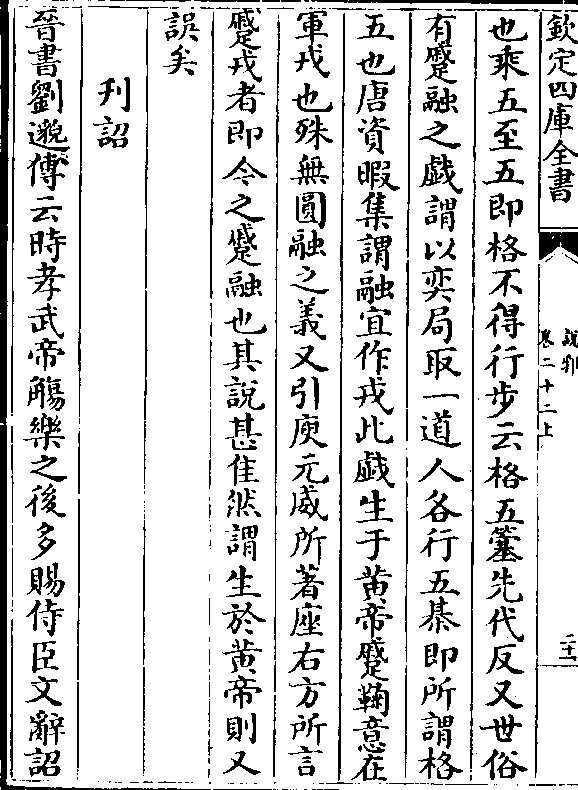 欽定四庫全書
說郛
卷二十二上
二十一
也乘五至五即格不得行步云格五簺先代反又世俗
有蹙融之戯謂以奕局取一道人各行五棊即所謂格
五也唐資暇集謂融宜作戎此戯生于黄帝蹙鞠意在
軍戎也殊無圓融之義又引庾元威所著座右方所言
蹙戎者即今之蹙融也其說甚佳然謂生於黄帝則又
誤矣
刋詔
晉書劉邈傳云時孝武帝觴樂之後多賜侍臣文辭詔